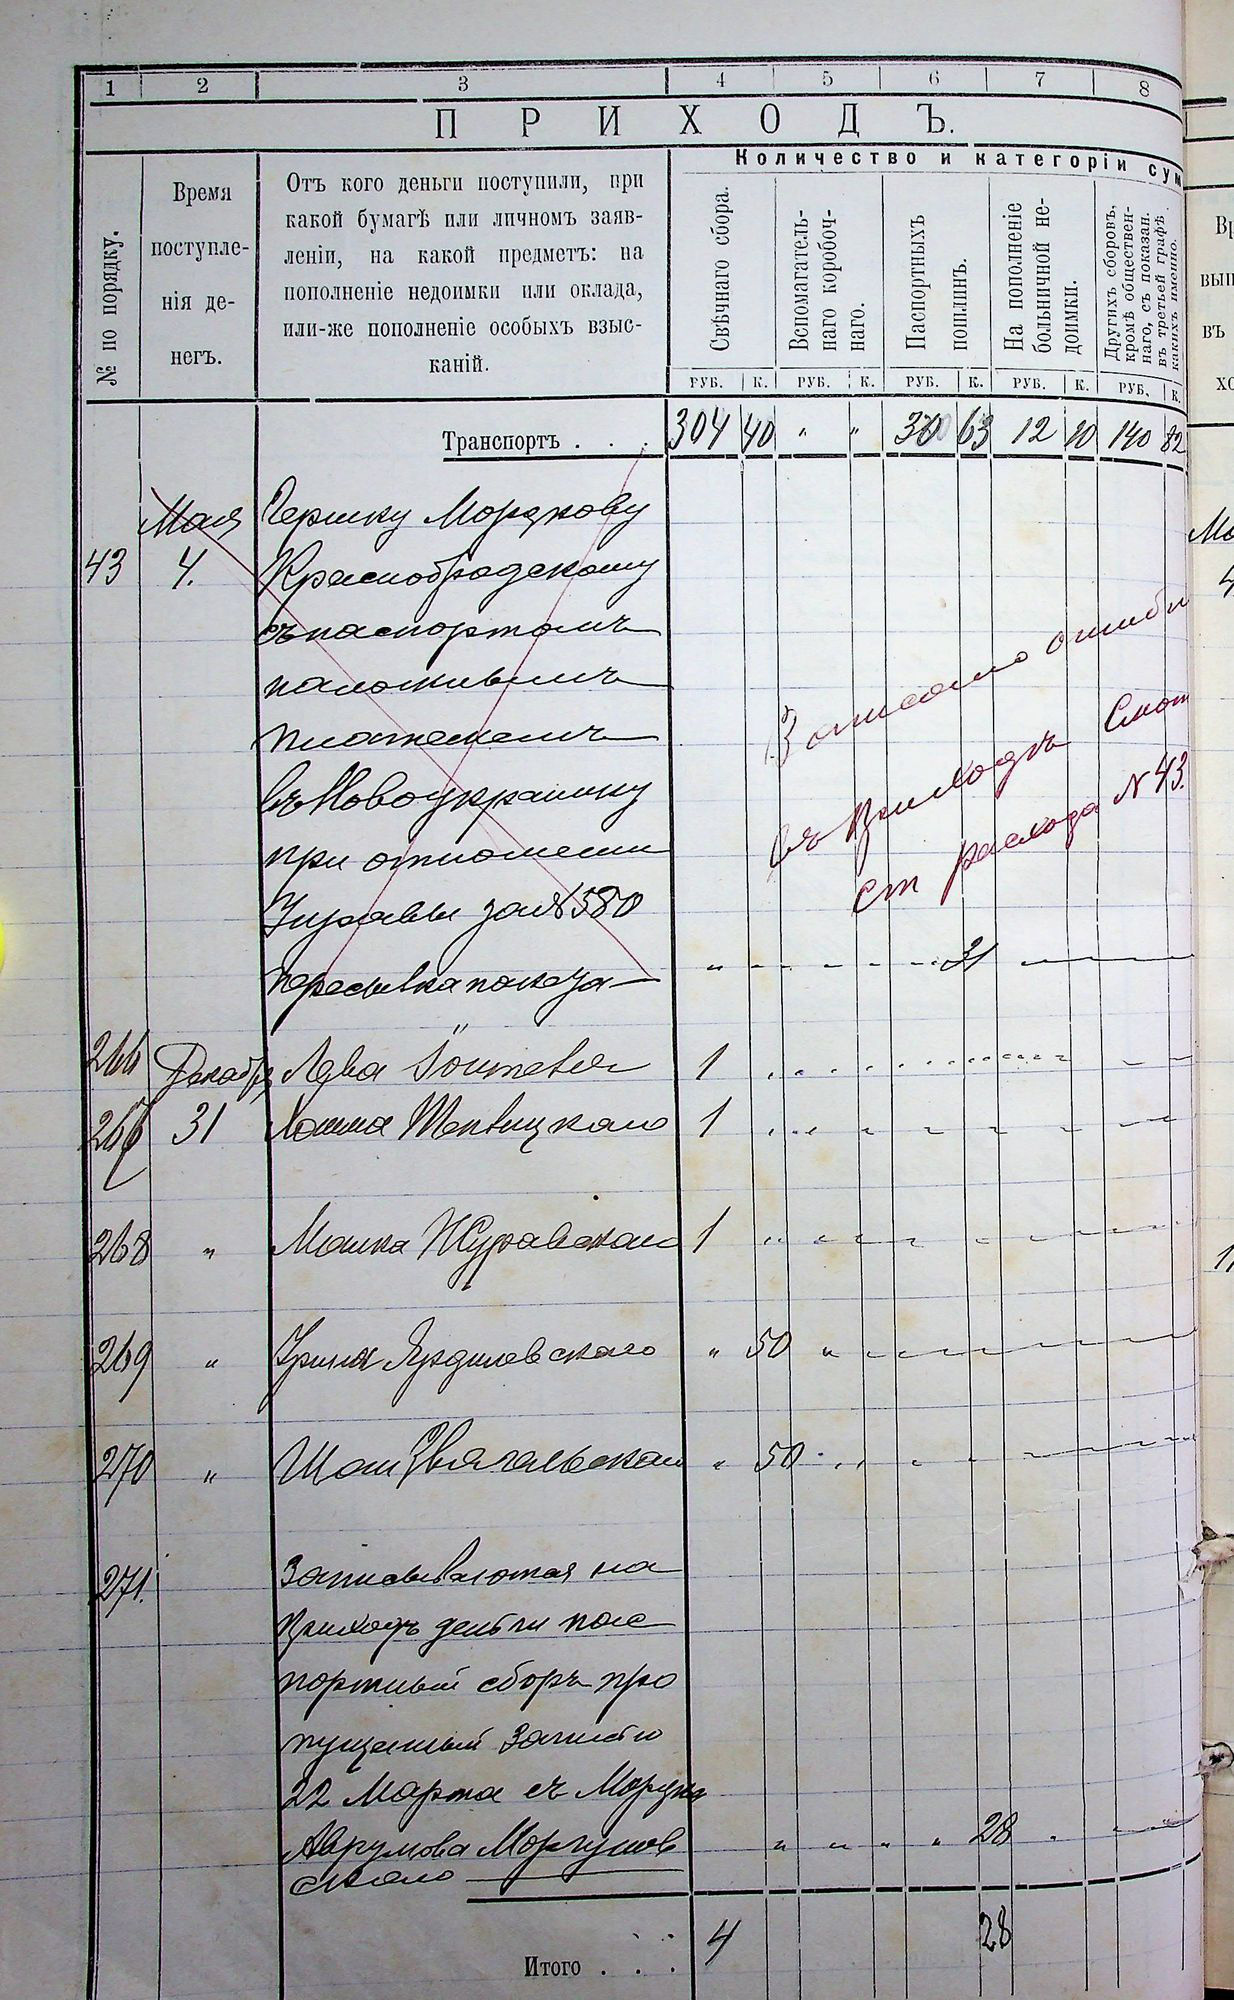 1 2 3 4 5 6 7 8
ПРИХОДЪ.
Количество и категоріи сум
№ по порядку.
Время
поступле-
нія де-
негъ.
Отъ кого деньги поступили, при
какой бумагѣ или личномъ заяв-
леніи, на какой предметъ: на
пополненіе недоимки или оклада,
или-же пополненіе особыхъ взыс-
каній.
Свѣчнаго сбора.
Вспомагатель-
наго коробоч-
наго.
Паспортныхъ
пошлинъ.
На пополненіе
больничной не-
доимки.
Другихъ сборовъ,
кромѣ обществен-
наго, съ показан.
въ третьей графѣ
какихъ именно.
РУБ. К. РУБ. К. РУБ. К. РУБ. К. РУБ. К.
Транспортъ . . . 304 40 " " 30 63 12 20 140 82
Мая Гершку Мордкову
43 4. Краснобродскому
съ паспортомъ
наложивши
платежемъ
въ Новоукраинку
при отношении
Управы за № 580
Пересылка наказа " 31
Записано ошибк
въ Приходъ Смот
ст расхода N 43.
266 Декабр Лева 1
267 31 Хаима 1
268 " Мошка Журавскаго 1
269 " " 50 "
270 " Звягальскаго " 50
271. Записываются на
Приходъ деньги пас
портный сборъ про
пущенный Записью
22 Марта съ
Аврумова Моргунов
скаго " " " " 28
Итого . . . 4 28